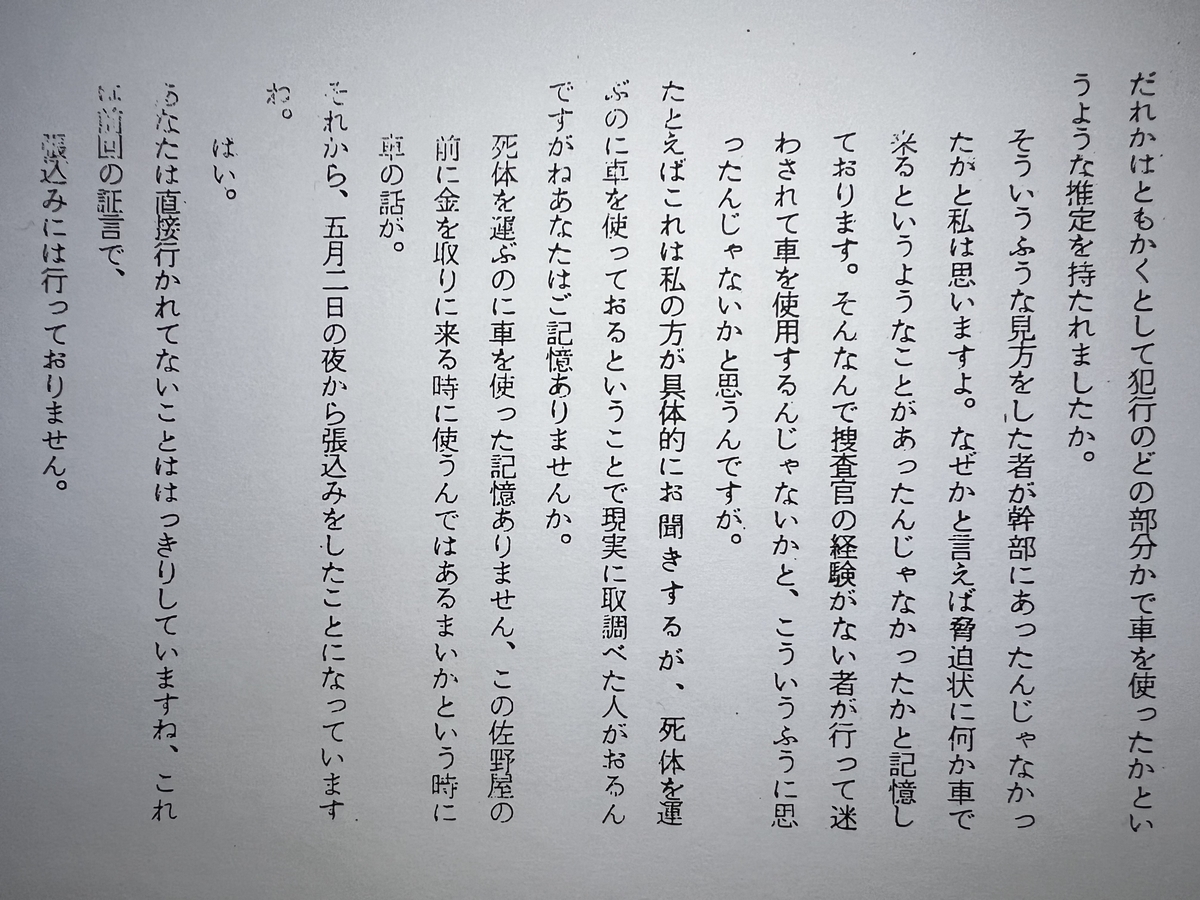 だれかはともかくとして犯行のどの部分かで車を使ったかとい
うような推定を持たれましたか。
そういうふうな見方をした者が幹部にあったんじゃなかっ
たかと私は思いますよ。なぜかと言えば脅迫状に何か車で
来るというようなことがあったんじゃなかったかと記憶し
ております。そんなんで捜査官の経験がない者が行って迷
わされて車を使用するんじゃないかと、こういうふうに思
ったんじゃないかと思うんですが。
たとえばこれは私の方が具体的にお聞きするが、死体を運
ぶのに車を使っておるということで現実に取調べた人がおるん
ですがねあなたはご記憶ありませんか。
死体を運ぶのに車を使った記憶ありません、この佐野屋の
前に金を取りに来る時に使うんではあるまいかという時に
車の話が。
それから、五月二日の夜から張込みをしたことになっています
ね。
はい。
あなたは直接行かれてないことははっきりしていますね、これ
は前回の証言で、
張込みには行っておりません。